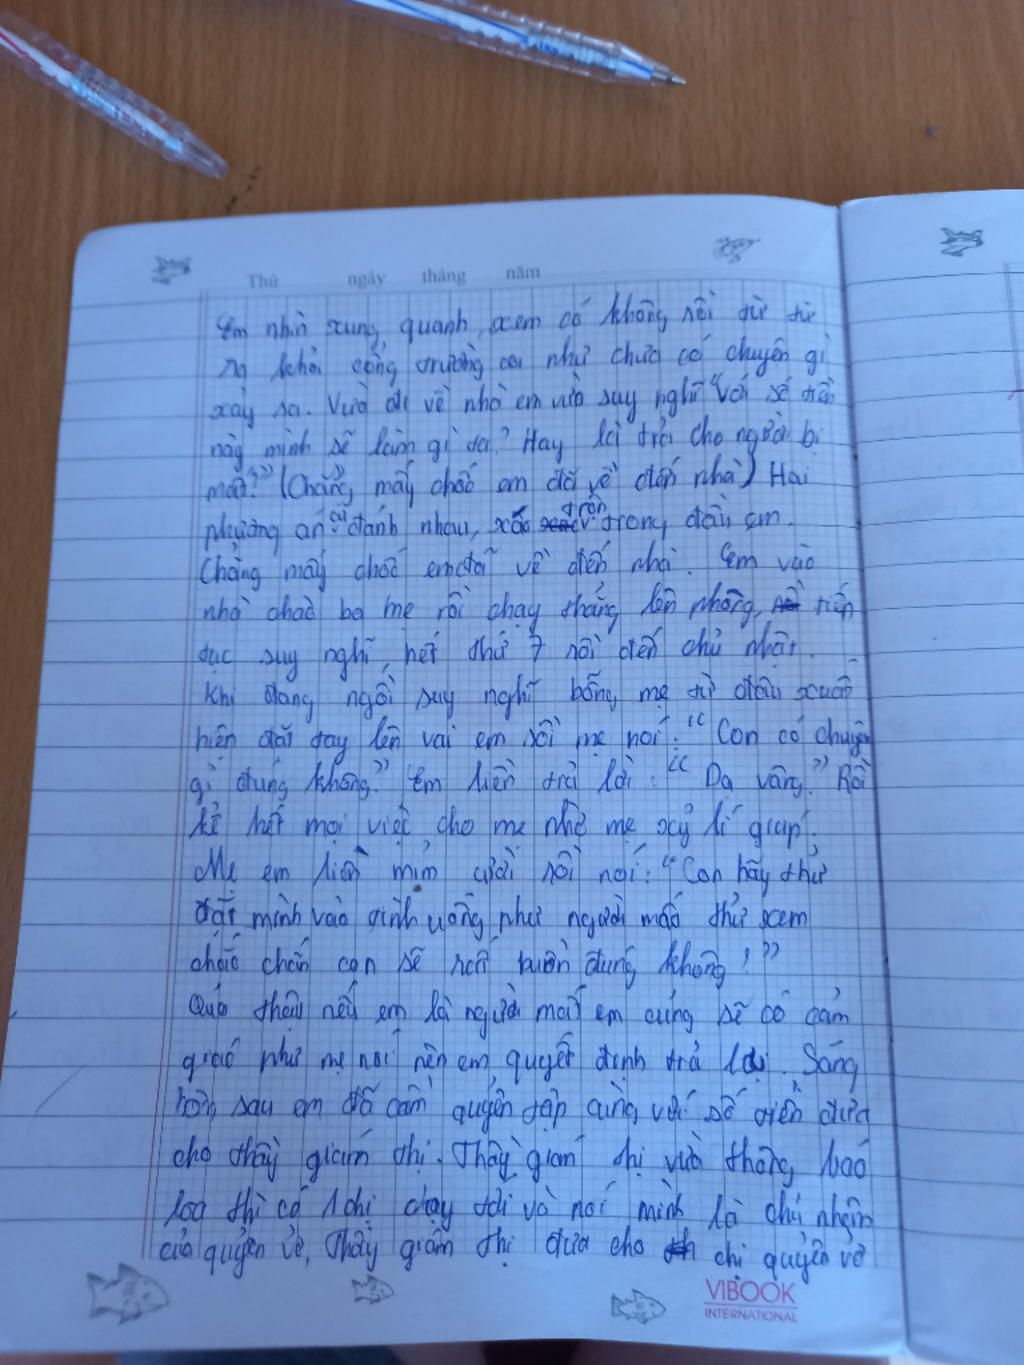 Thứ ngày tháng năm
Em nhìn xung quanh xem có không rồi từ từ
ra khỏi cổng trường coi như chưa có chuyện gì
xảy ra. Vừa đi về nhà em vừa suy nghĩ "Với số tiền
này mình sẽ làm gì ta? Hay là trả cho người bị
mất?" (Chẳng mấy chốc em đã về đến nhà) Hai
phương án cứ đánh nhau, trộn trong đầu em.
Chẳng mấy chốc em đã về đến nhà. Em vào
nhà chào ba mẹ rồi chạy thẳng lên phòng, tiếp
tục suy nghĩ, hết thứ 7 rồi đến chủ nhật.
Khi đang ngồi suy nghĩ bỗng mẹ từ đâu xuất
hiện đặt tay lên vai em rồi mẹ nói: "Con có chuyện
gì đúng không?" Em liền trả lời: "Dạ vâng." Rồi
kể hết mọi việc cho mẹ nhờ mẹ xử lí giúp.
Mẹ em liền mỉm cười rồi nói: "Con hãy thử
đặt mình vào tình uống như người mất thử xem
chắc chắn con sẽ rất buồn đúng không!"
Quả thậu nếu em là người mất em cũng sẽ có cảm
giác như mẹ nói nên em quyết định trả lại. Sáng
hôm sau em đã cầm quyển tập cùng với số tiền đưa
cho thầy giám thị. Thầy giám thị vừa thông báo
loa thì có 1 chị chạy tới và nói mình là chủ nhân
của quyển vở, Thầy giám thị đưa cho chị quyển vở
VIBOOK
INTERNATIONAL